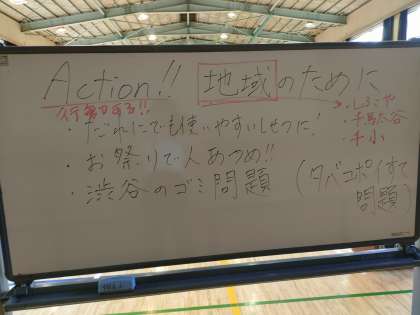 Action!! 地域のために
行動する!!
・だれにでも使いやすいしせつに!
・お祭りで人あつめ!!
・渋谷のゴミ問題 (タバコポイすて問題)
・千駄谷
・千小